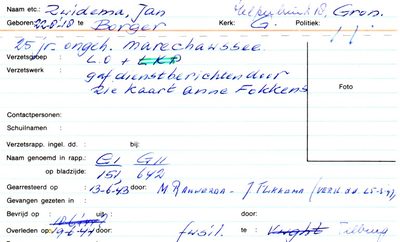 Naam etc.: Zuidema, Jan Gron.
Geboren: 22-8-'18 te Borger Kerk: G. Politiek:
25 jr. ongeh. marechaussee.
Verzetsgroep : L.O + LKP
Verzetswerk : gaf dienstberichten door
zie kaart Anne Fokkens
Foto
Contactpersonen:
Schuilnamen :
Verzetsrapp. ingel. dd. : bij:
Naam genoemd in rapp.: GI GII
op bladzijde: 151 642
Gearresteerd op :13-6-43 door: M Rauwerda - J Flikkema
Gevangen gezeten in :
Bevrijd op : uit : door :
Overleden op: 19-6-44 door: fusil. te : Vught Tilburg